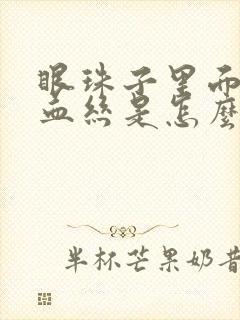 眼珠子里而
血丝是怎麼
半杯芒果奶昔